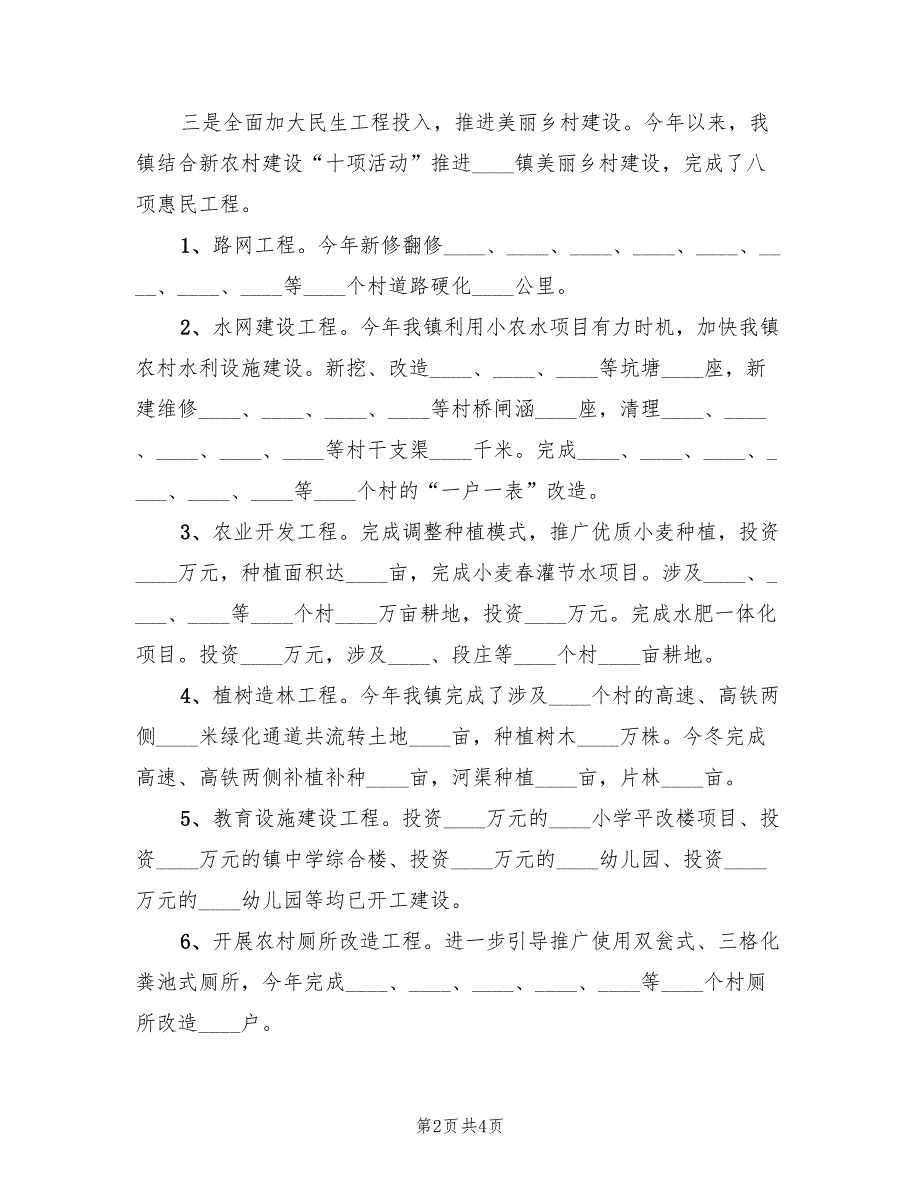 三是全面加大民生工程投入，推进美丽乡村建设。今年以来，我
镇结合新农村建设“十项活动”推进____镇美丽乡村建设，完成了八
项惠民工程。
1、路网工程。今年新修翻修____、____、____、____、____、__
__、____、____等____个村道路硬化____公里。
2、水网建设工程。今年我镇利用小农水项目有力时机，加快我镇
农村水利设施建设。新挖、改造____、____、____等坑塘____座，新
建维修____、____、____、____等村桥闸涵____座，清理____、____
、____、____、____等村干支渠____千米。完成____、____、____、_
___、____、____等____个村的“一户一表”改造。
3、农业开发工程。完成调整种植模式，推广优质小麦种植，投资
____万元，种植面积达____亩，完成小麦春灌节水项目。涉及____、_
___、____等____个村____万亩耕地，投资____万元。完成水肥一体化
项目。投资____万元，涉及____、段庄等____个村____亩耕地。
4、植树造林工程。今年我镇完成了涉及____个村的高速、高铁两
侧____米绿化通道共流转土地____亩，种植树木____万株。今冬完成
高速、高铁两侧补植补种____亩，河渠种植____亩，片林____亩。
5、教育设施建设工程。投资____万元的____小学平改楼项目、投
资____万元的镇中学综合楼、投资____万元的____幼儿园、投资____
万元的____幼儿园等均已开工建设。
6、开展农村厕所改造工程。进一步引导推广使用双瓮式、三格化
粪池式厕所，今年完成____、____、____、____、____等____个村厕
所改造____户。
第2页共4页